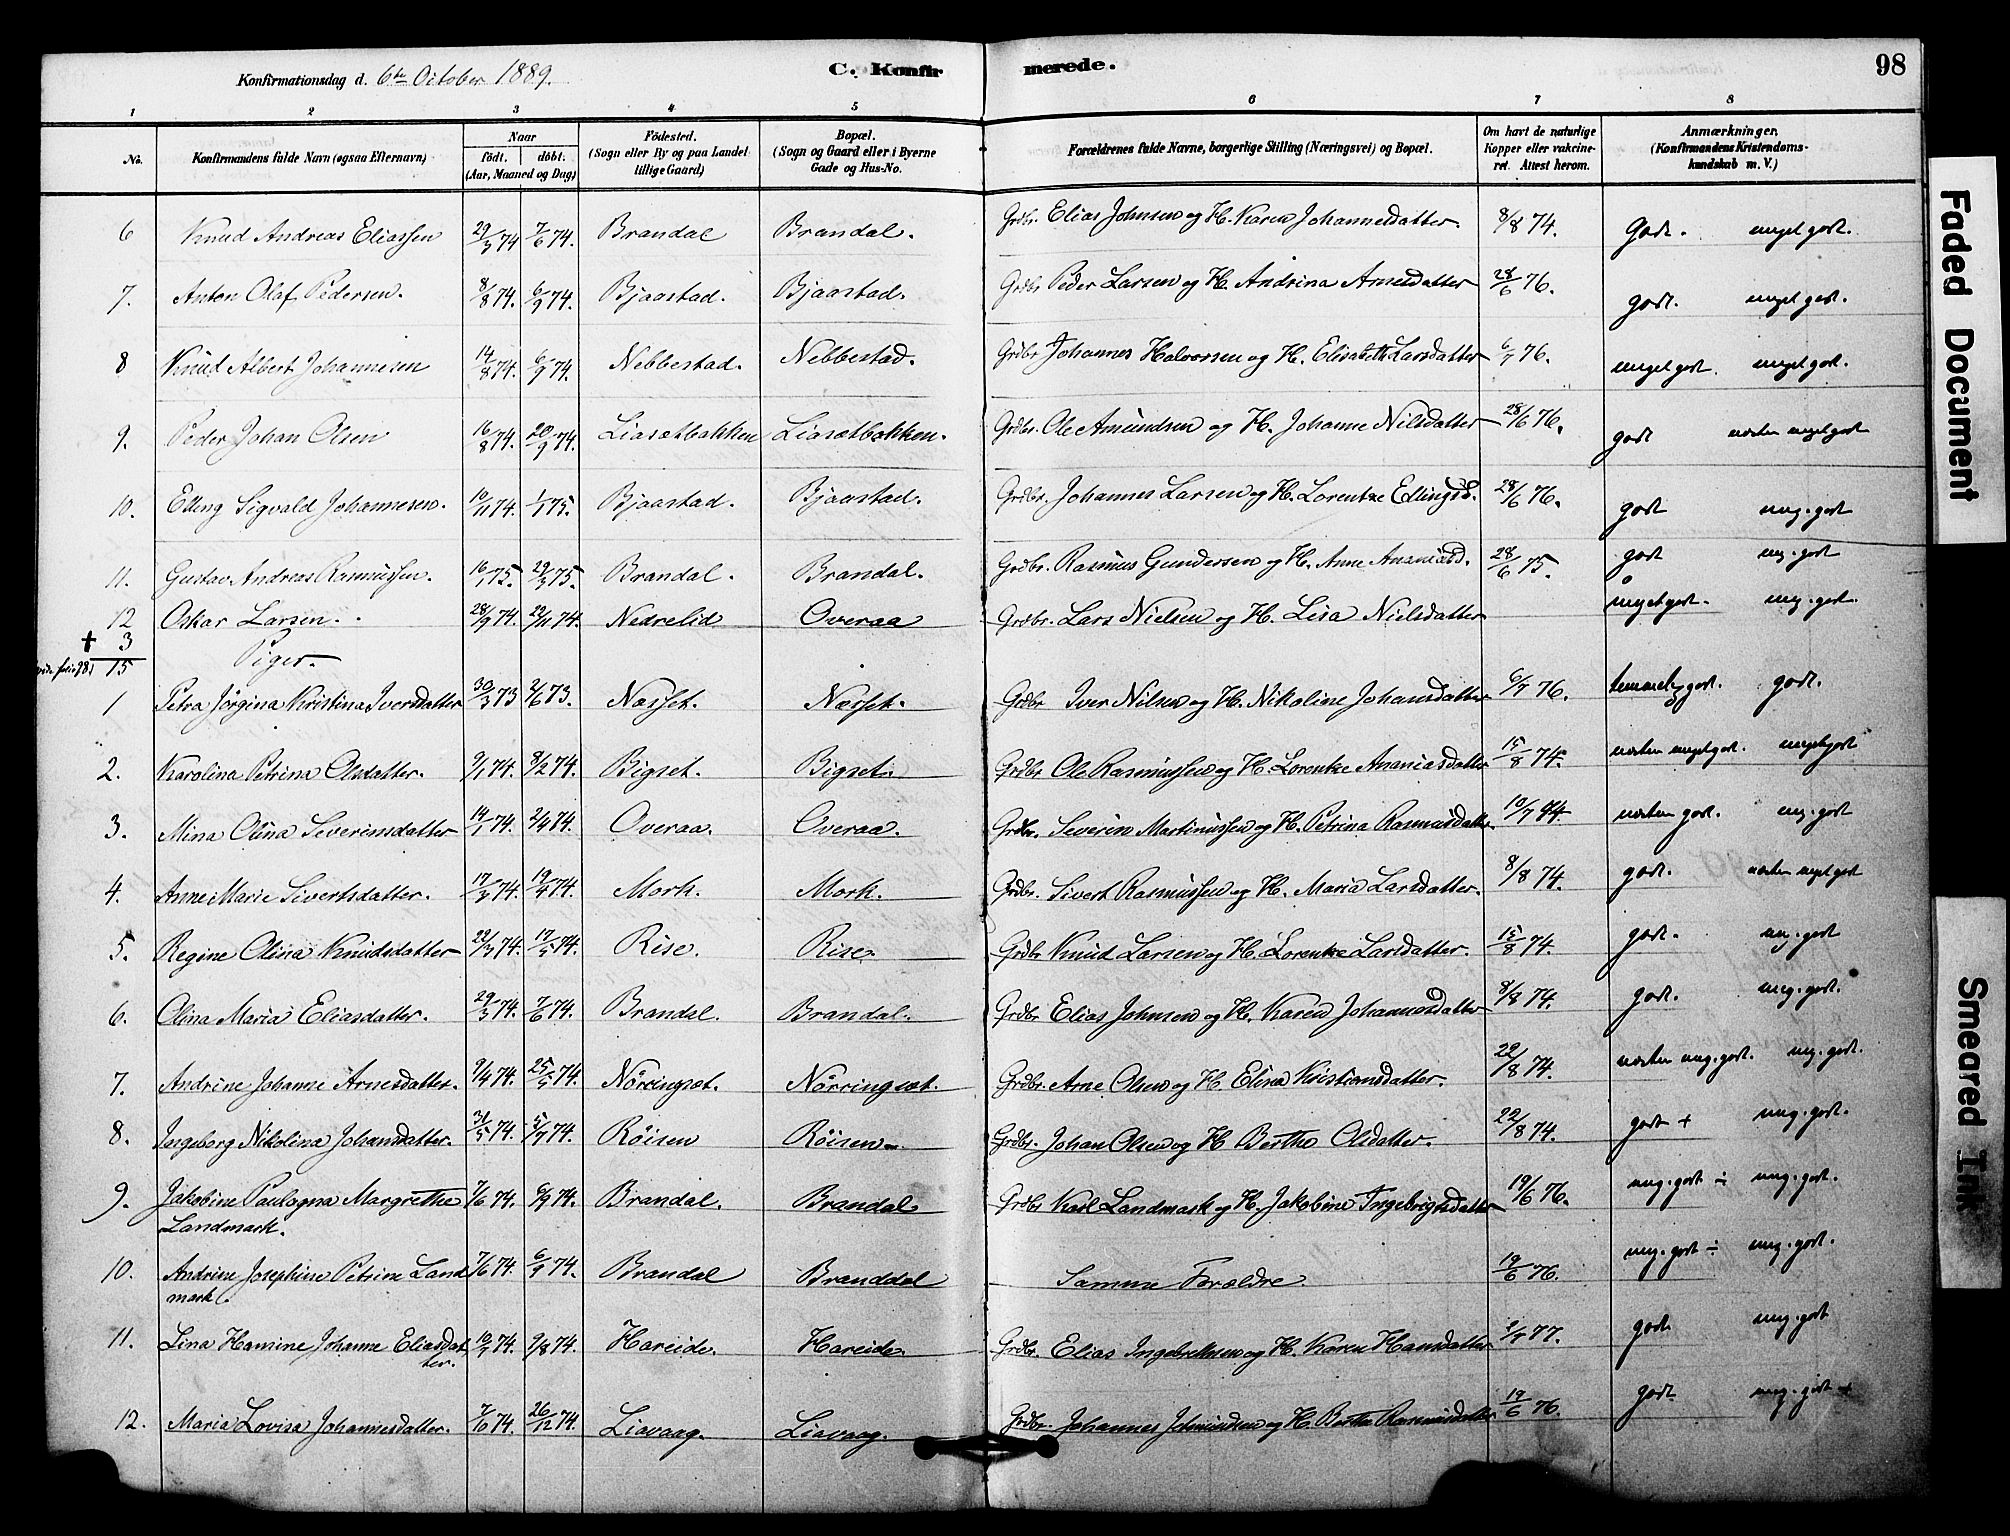 Konfirmationsdag d. 6te October 1889.
C. Konfirmerede.
98
1 2 3 4 5 6 7 8
No.
Konfirmandens fulde Navn (ogsaa Efternavn)
Naar
født. døbt.
(Aar, Maaned og Dag)
Fødested.
(Sogn eller By og paa Landet tillige Gaard)
Bopæl.
(Sogn og Gaard eller i Byerne Gade og Hus-No.
Forældrenes fulde Navne, borgerlige Stilling (Næringsvei) og Bopæl.
Om havt de naturlige Kopper eller vakcineret. Attest herom.
Anmærkninger.
(Konfirmandens Kristendomskundskab m. V.)
6 Knud Andreas Eliassen 29/3 74 7/6 74. Brandal Brandal. Grdbr. Elias Johnsen og H. Karen Johannesdatter. 8/8 74. Godt. meget godt.
7. Anton Olaf Pedersen. 8/8 74. 6/9 74. Bjaastad. Bjaastad. Grdbr Peder Larsen og H. Andrina Arnesdatter 28/6 76. godt. meget godt.
8 Knud Albert Johannesen 14/8 74. 6/9 74. Nebbestad. Nebbestad. Grdbr Johannes Halvorsen og H. Elisabeth Larsdatter 6/7 76. meget godt. meget godt.
9. Peder Johan Olsen 16/8 74. 20/9 74. Liasætbakken Liasætbakken. Grdbr. Ole Amundsen og H. Johanne Nilsdatter 28/6 76. godt næsten meget godt
10. Elling Sigvald Johannesen. 10/11 74. 1/1 75. Bjaastad. Bjaastad. Grdbr. Johannes Larsen og H. Lorentze Ellingsd. 28/6 76. godt meg. godt
11. Gustav Andreas Rasmussen. 16/1 75. 29/3 75. Brandal. Brandal. Grdbr. Rasmus Gundersen og H. Anne Ananiasd. 28/6 75. godt mg. godt
12 Oskar Larsen. 28/9 74. 22/11 74. Nedrelid Overaa Grdbr. Lars Nielsen og H. Lisa Nielsdatter meget godt. meg. godt.
+ 3
15
Piger.
1 Petra Jørgina Kristina Iversdatter 30/3 73 2/6 73. Næsset. Næsset. Grdbr Iver Nilsen og H. Nikoline Johansdatter 6/7 76. temmelig godt. godt.
2. Karolina Petrina Olsdatter. 9/1 74. 8/2 74. Bigset. Bigset. Grdbr Ole Rasmussen og H. Lorentze Ananiasdatter 15/8 74. næsten meget godt. meget godt
3. Mina Olina Severinsdatter 14/1 74. 2/4 84. Overaa. Overaa. Grdbr. Severin Martinussen og H. Petrina Rasmusdatter. 10/7 74 næsten godt. mg. godt
4. Anne Marie Sivertsdatter. 17/3 74. 19/4 74. Mork. Mork. Grdbr. Sivert Rasmussen og H. Maria Larsdatter. 8/8 74. godt. næsten meget godt
5. Regine Olina Knudsdatter 22/3 74. 17/5 74. Rise. Rise. Grdbr Knud Larsen og H. Lorentze Larsdatter. 15/8 74. godt. mg. godt
6. Olina Maria Eliasdatter. 29/3 74. 7/6 74. Brandal. Brandal. Grdbr Elias Johnsen og H. Karen Johannesdatter 8/8 74. godt. meg. godt.
7. Andrine Johanne Arnesdatter. 9/4 74. 25/5 74. Nörringsæt. Nörringsæt. Grdbr. Arne Olsen og H. Elina Kristiansdatter. 22/8 74. næsten meg. godt. mg. godt.
8. Ingeborg Nikolina Johansdatter. 31/5 74. 5/7 74. Röisen Röisen Grdbr. Johan Olsen og H Berthe Olsdatter. 22/8 74. godt + meg. godt.
9. Jakobine Paulagna Margrethe Landmark. 7/6 74. 6/9 74. Brandal. Brandal Grdbr Karl Landmark og H. Jakobine Ingebrigtsdatter 19/6 76. meg. godt ÷ meg. godt.
10. Andrine Josephine Petrine Landmark. 7/6 74. 6/9 74. Brandal Branddal Samme Forældre. 19/6 76. meg. godt ÷ meg. godt.
11. Lina Hamine Johanne Eliasdatter. 10/7 74. 9/8 74. Hareide. Hareide. Grdbr. Elias Ingebrektsen og H. Karen Hansdatter 77. godt meg. godt
12. Maria Lovisa Johannesdatter. 7/10 74. 26/12 74. Liavaag. Liavaag. Grdbr. Johannes Johnsen og H. Berthe Rasmusdatter 19/6 76. godt. meg. godt +
Faded Document
Smeared Ink